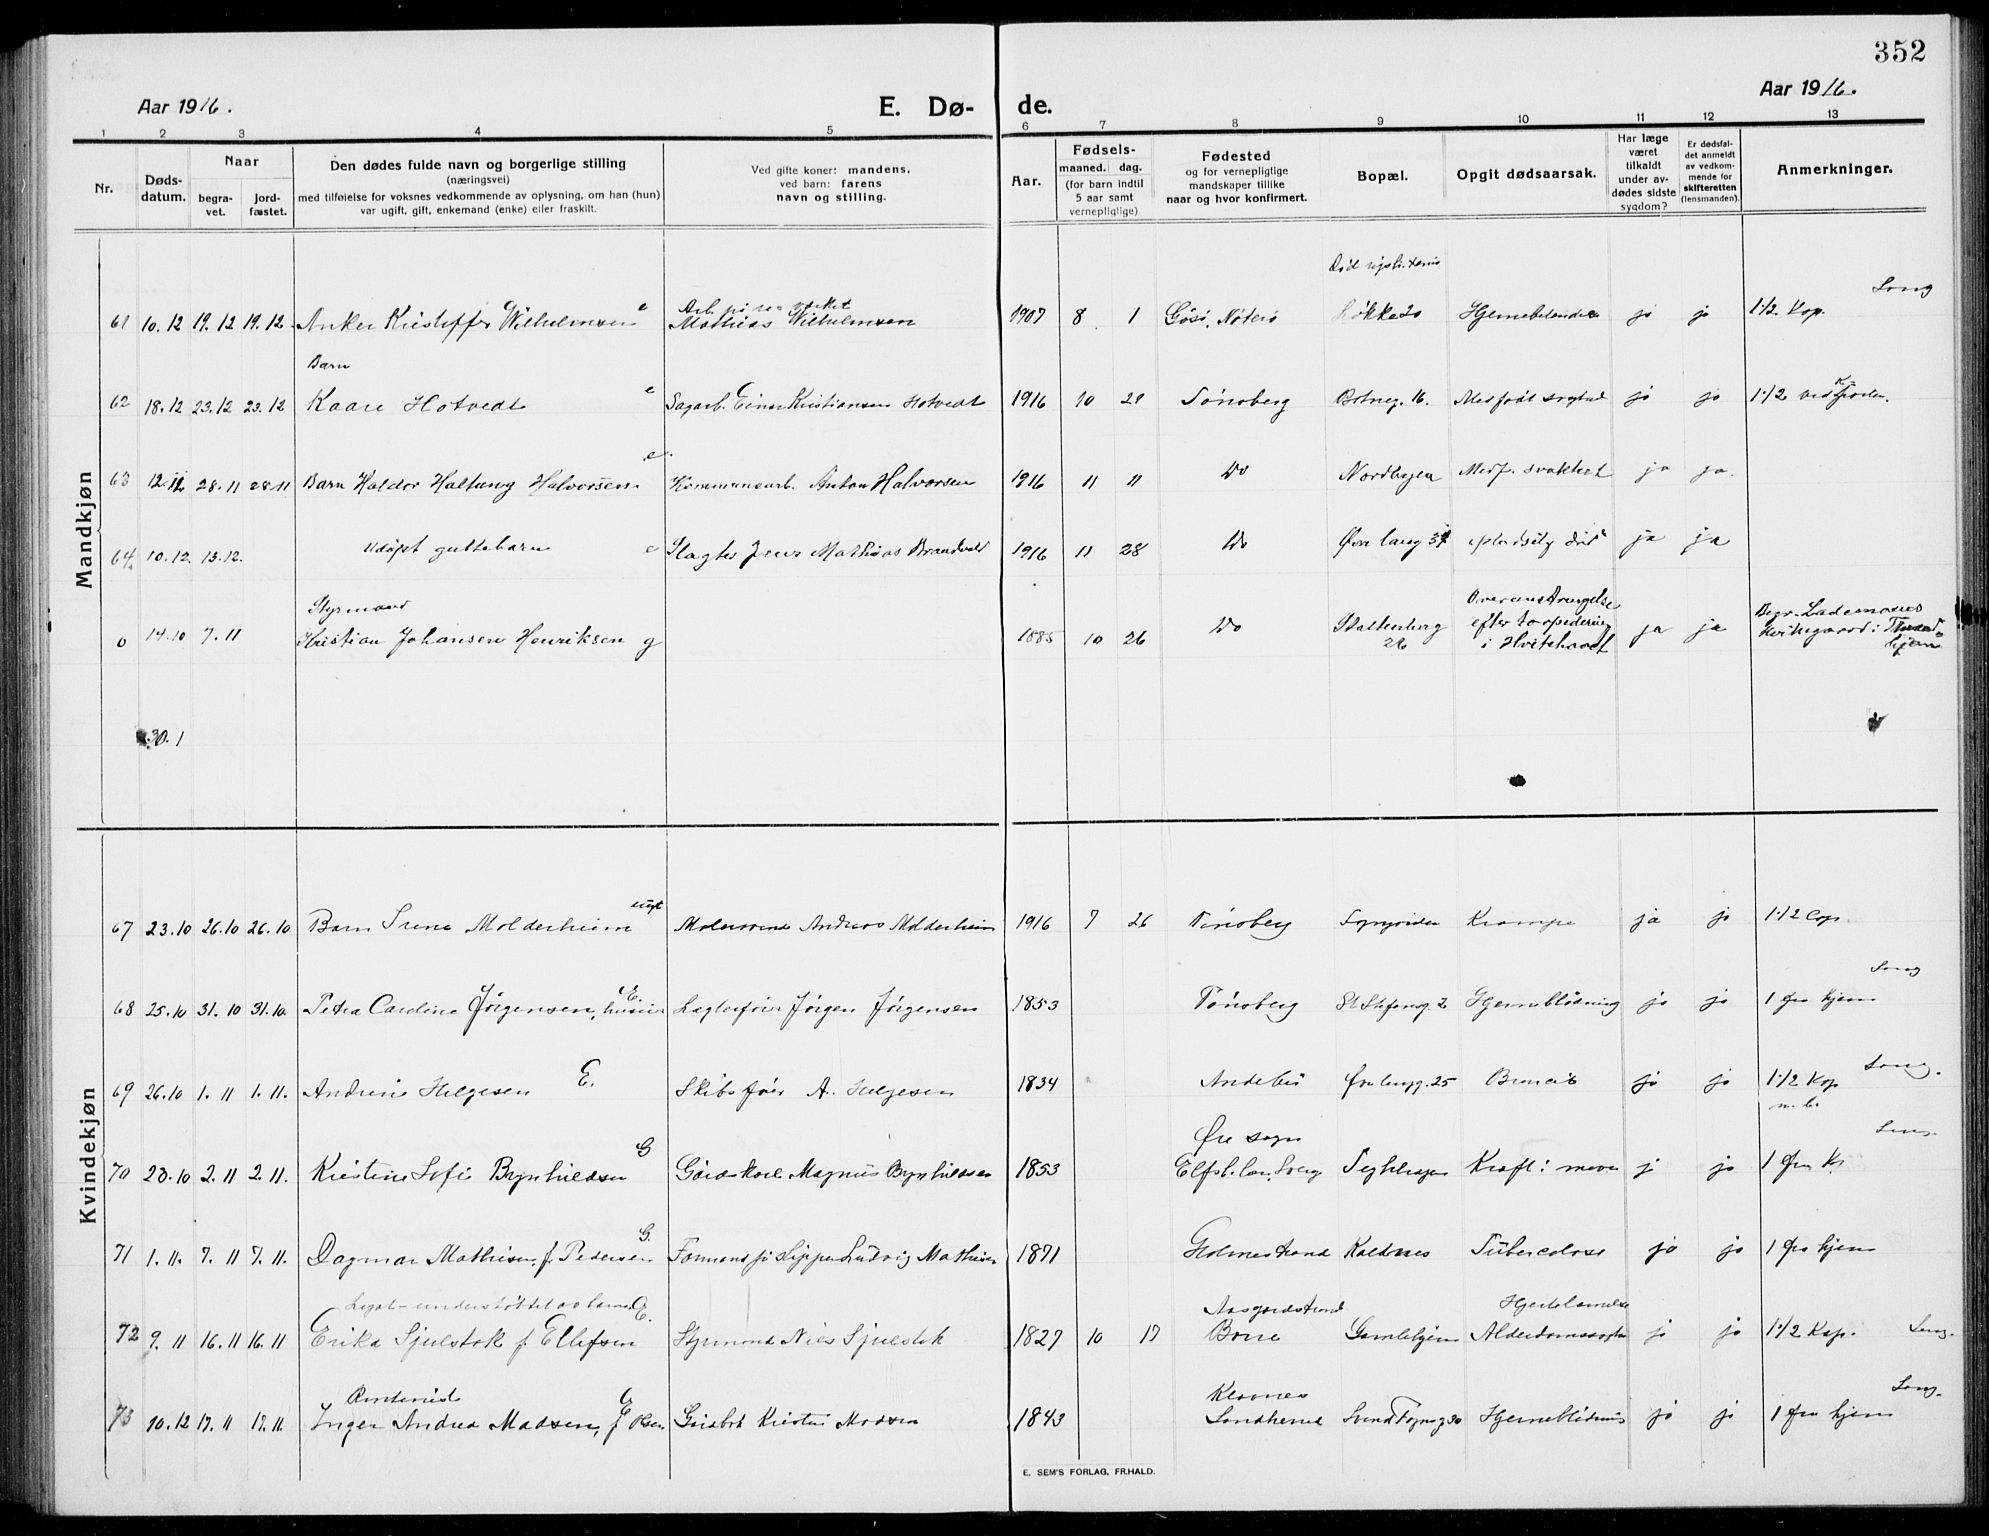 352
Aar 1916.
E. Dø-
de.
Aar 1916.
1 2 3 4 5 6 7 8 9 10 11 12 13
Nr.
Døds-
datum.
Naar
begra-
vet.
jord-
fæstet.
Den dødes fulde navn og borgerlige stilling
(næringsvei)
med tilføielse for voksnes vedkommende av oplysning, om han (hun)
var ugift, gift, enkemand (enke) eller fraskilt.
Ved gifte koner: mandens,
ved barn: farens
navn og stilling.
Aar.
Fødsels-
maaned. dag.
(for barn indtil
5 aar samt
vernepligtige)
Fødested
og for vernepligtige
mandskaper tillike
naar og hvor konfirmert.
Bopæl.
Opgit dødsaarsak.
Har læge
været
tilkaldt
under av-
dødes sidste
sygdom?
Er dødsfal-
det anmeldt
av vedkom-
mende for
skifteretten
(lensmanden).
Anmerkninger.
Mandkjøn
Sang
61 10.12 19.12 19.12 Anker Kristoffer Wilhelmsen e Mathias Wilhelmsen 1907 8 1 Gåsø, Nøterø Løkke 20 jo jo 1/2 Kap.
Barn
62 18.12 23.12 23.12 Kaare Hotvedt e Sagarb. Einar Kristiansen Hotvedt 1916 10 29 Tønsberg Botneg. 16. Medfødt jo jo 1/2 ved
63 12.12 28.11 28.11 Barn Haldor Halvorsen e. Kommunearb. Anton Halvorsen 1916 11 11 Do Nordbyen Medf. svakhet ja ja.
64. 10.12. 13.12. Udøpt guttebarn e Slagter Jens Mathias 1916 11 28 Do Øvre Lang 37 ja ja
Styrmand
0 14.10 7.11 Kristian Johansen Henriksen g 1885 10 26 Do Stoltenberg 26 Overanstrengelse
efter torpedering
i Hvitehavet ja ja Begr. Lademoens
Kirkegaard i Trond-
hjem
30.1
Kvindekjøn
67 23.10 26.10 26.10 Barn Irene Molderheim ugift Andreas Molderheim 1916 7 26 Tønsberg Krampe ja jo 1/2 Cap.
Sang
68 25.10 31.10 31.10. Petra Caroline Jørgensen, E. Jørgen Jørgensen 1853 Tønsberg St Stefansg. 2 Hjerneblødning jo jo 1 fra hjem
Sang.
69 26.10 1.11 1.11. Andrine Helgesen E. Skibsfører A. Helgesen 1834 Andebu Øvre Langg. 25 jo jo 1/2 Kap
Øre sogn
Sang.
70 28.10 2.11 2.11. Kristine Sofie Brynhildsen G Gaardskarl Magnus Brynhildsen 1853 Elfsb. len, Sverg Teglhagen Kræft i maven j jo 1 fra K.
71 1.11. 7.11 7.11. Dagmar Mathisen, f. Pedersen G. Formand Ludvig Mathisen 1871 Holmestrand Kaldnes Tuberculose jo jo 1 fra hjem
Legat-understøttet av E.
Aasgaardstrand
Hjertelammelse
72 9.11 16.11 16.11 Erika Sjuelstok f. Ellefsen Styrmand Nils Sjuelstok 1827 10 17 Borre Gamlehjem j jo 1/2 Kap. Sang.
E
Sang.
73 10.12 17.11 17.11. Inger Andrea Madsen, f Olsen Kristen Madsen 1843 Sandherred Svend Foynsg 30 Hjerneblødning jo jo 1 fra hjem
E. SEM'S FORLAG, FR.HALD.